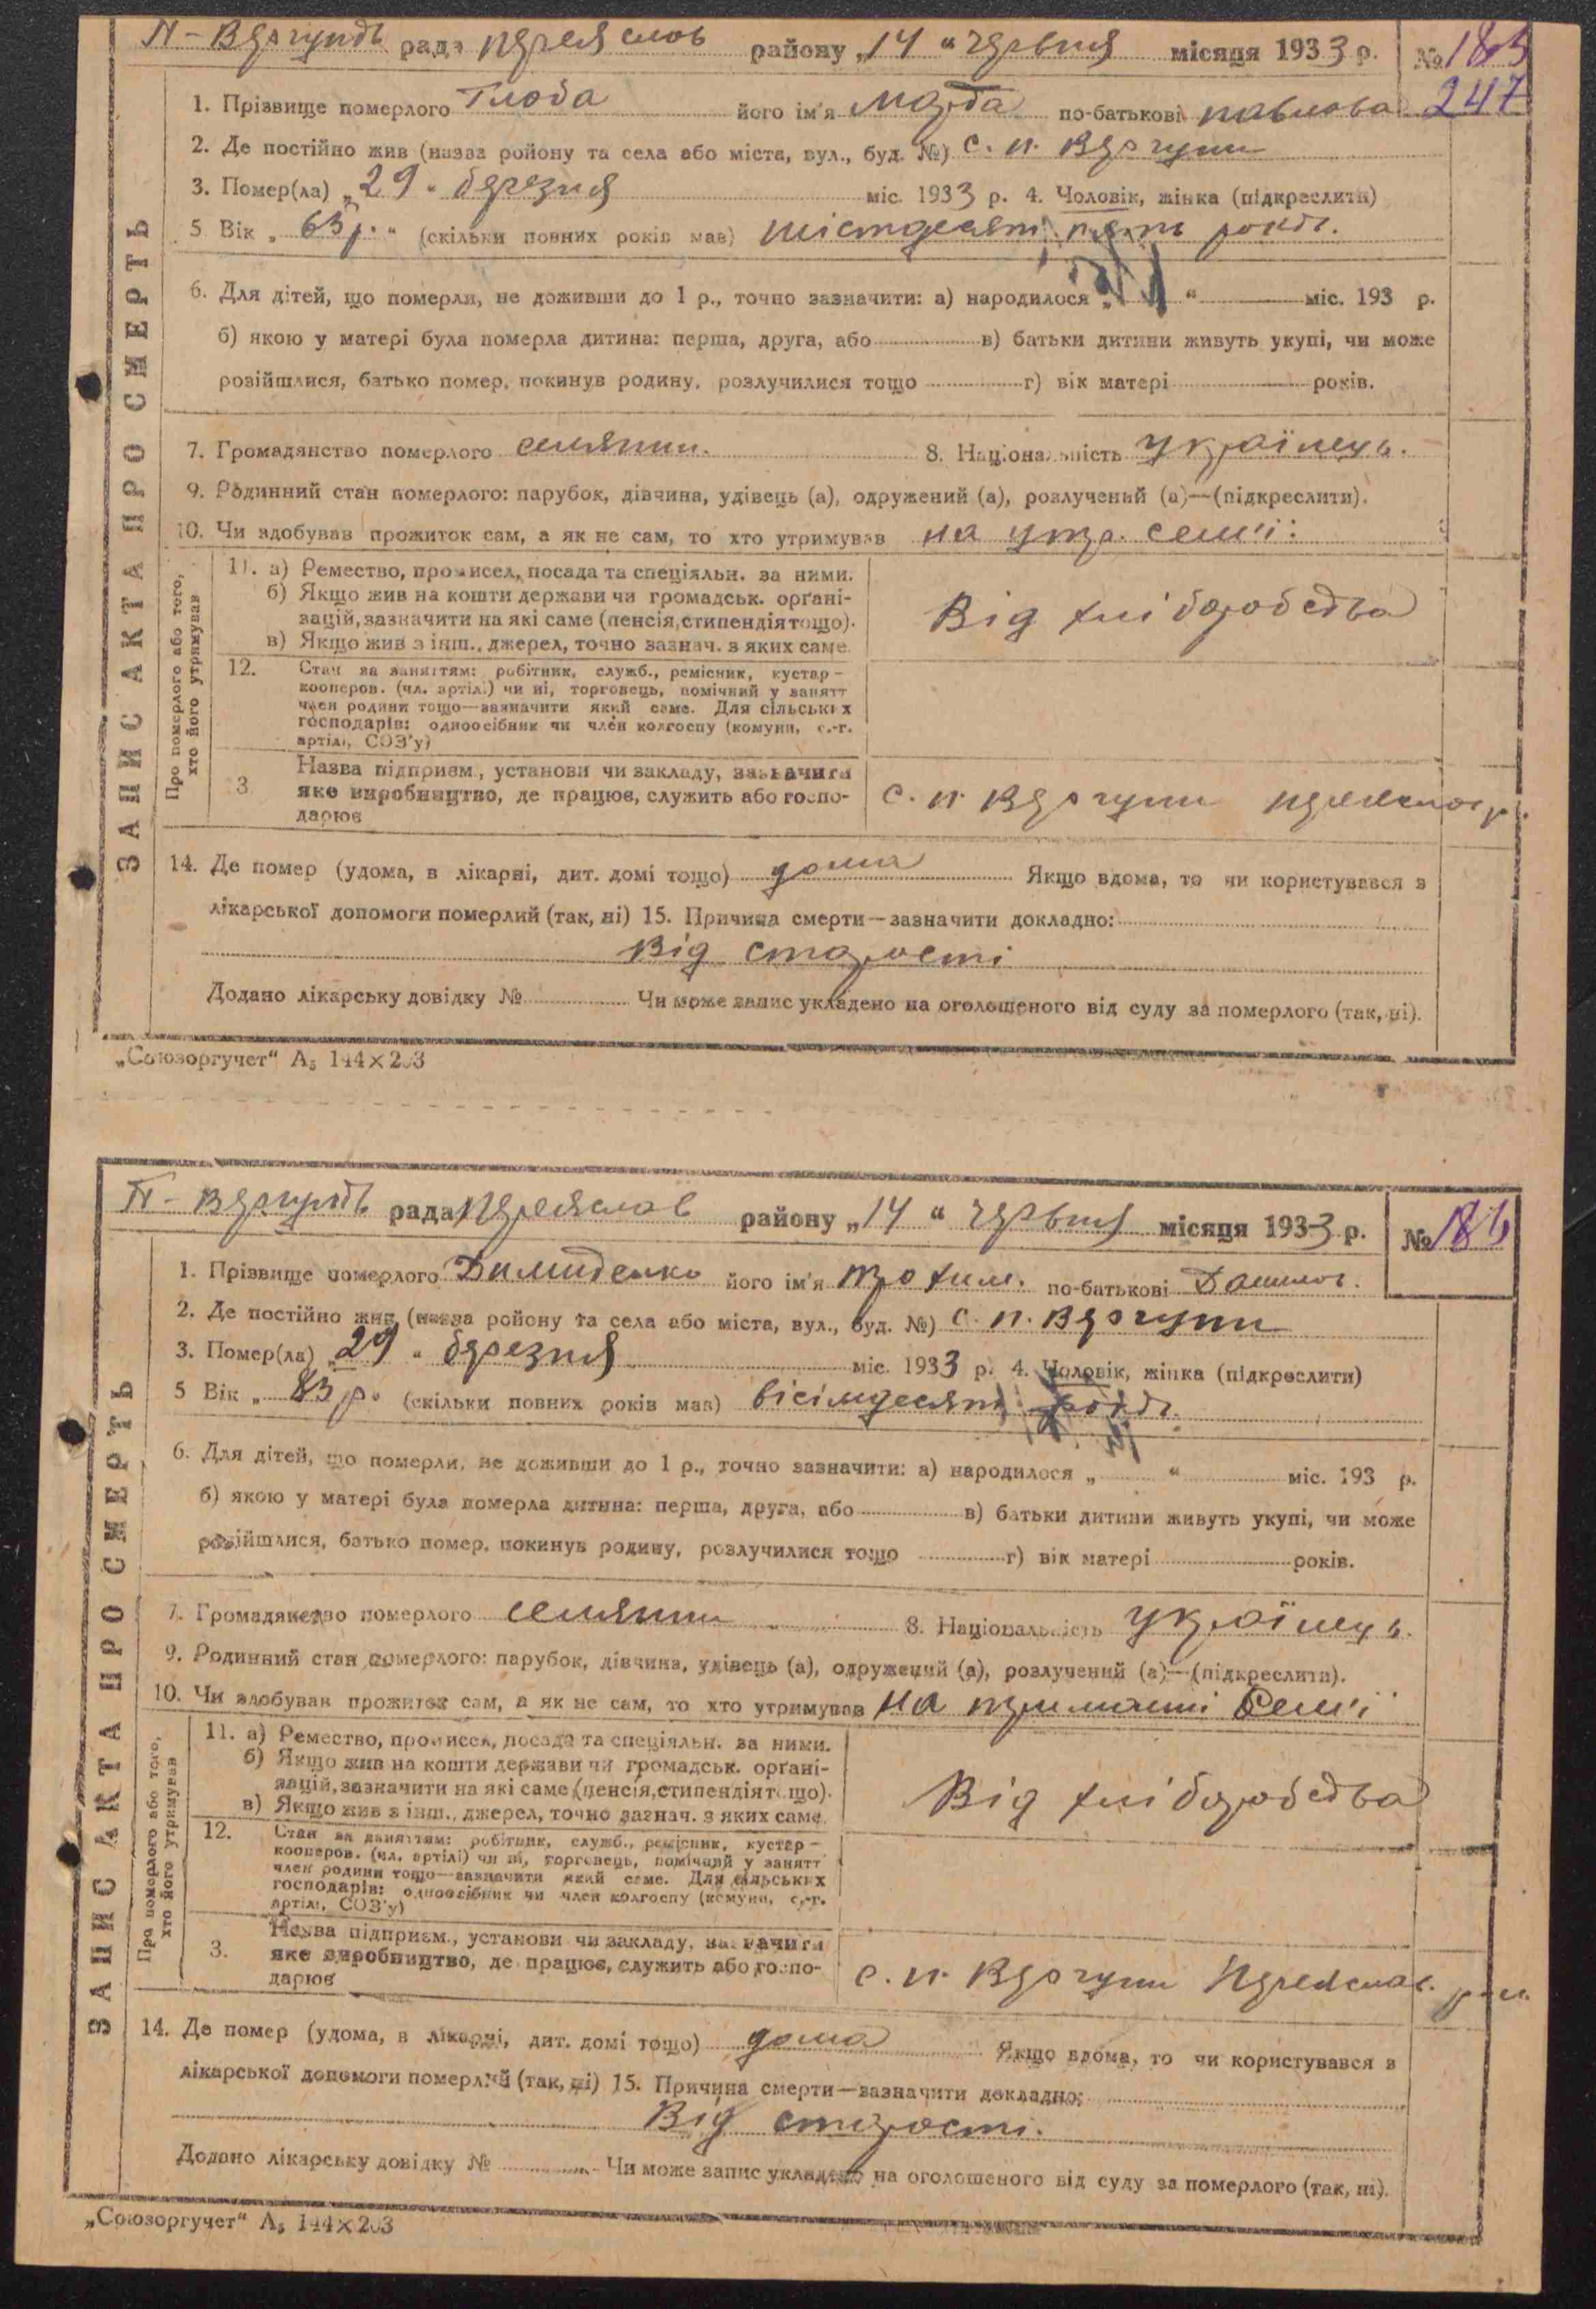 П-Вергунів рада Переяслов району „14“ червня місяця 1933 р. № 185
247
ЗАПИС АКТА ПРО СМЕРТЬ
1. Прізвище померлого Глоба його ім'я по-батькові Павлова
2. Де постійно жив (назва ройону та села або міста, вул., буд. №) с. п. Вергуни
3. Помер(ла) „29“ березня міс. 1933 р. 4. Чоловік, жінка (підкреслити)
5 Вік „ 63 р. “ (скільки повних років мав) шістдесят років.
6. Для дітей, що померли, не доживши до 1 р., точно зазначити: а) народилося „ “ міс. 193 р.
б) якою у матері була померла дитина: перша, друга, або в) батьки дитини живуть укупі, чи може
розійшлися, батько помер, покинув родину, розлучилися тощо г) вік матері років.
7. Громадянство померлого селянин. 8. Національність Українець.
9. Родинний стан померлого: парубок, дівчина, удівець (а), одружений (а), розлучений (а)—(підкреслити).
10. Чи здобував прожиток сам, а як не сам, то хто утримував на утр. семʼї
Про померлого або того, хто його утримував
11. а) Ремество, промисел, посада та спеціяльн. за ними.
б) Якщо жив на кошти держави чи громадськ. орґані-
зацій, зазначити на які саме (пенсія, стипендія тощо).
в) Якщо жив з інш., джерел, точно зазнач. з яких саме.
Від хліборобства
12. Стан за заняттям: робітник, служб., ремісник, кустар—
кооперов. (чл. артілі) чи ні, торговець, помічний у занятт
член родини тощо—зазначити який саме. Для сільських
господарів: одноосібник чи член колгоспу (комуни, с.-г.
артілі, СОЗ'у)
3 Назва підприєм., установи чи закладу, зазначити
яке виробництво, де працює, служить або госпо-
дарює
с. п. Вергуни Переяслов р.
14. Де помер (удома, в лікарні, дит. домі тощо) дома Якщо вдома, то чи користувався з
лікарської допомоги померлий (так, ні) 15. Причина смерти—зазначити докладно:
Від старости
Додано лікарську довідку № Чи може запис укладено на оголошеного від суду за померлого (так, ні).
„Союзоргучет“ А₅ 144×203
П-Вергунів рада Переяслав району „14“ червня місяця 1933 р. № 186
ЗАПИС АКТА ПРО СМЕРТЬ
1. Прізвище померлого Демиденко його ім'я Трохим. по-батькові Данилов.
2. Де постійно жив (назва ройону та села або міста, вул., буд. №) с. п. Вергуни
3. Помер(ла) „29“ березня міс. 1933 р. 4. Чоловік, жінка (підкреслити)
5 Вік „ 83 р. (скільки повних років мав) вісімдесят років.
6. Для дітей, що померли, не доживши до 1 р., точно зазначити: а) народилося „ “ міс. 193 р.
б) якою у матері була померла дитина: перша, друга, або в) батьки дитини живуть укупі, чи може
розійшлися, батько помер, покинув родину, розлучилися тощо г) вік матері років.
7. Громадянство померлого селянин 8. Національність Українець.
9. Родинний стан померлого: парубок, дівчина, удівець (а), одружений (а), розлучений (а)—(підкреслити).
10. Чи здобував прожиток сам, а як не сам, то хто утримував на семʼї
Про померлого або того, хто його утримував
11. а) Ремество, промисел, посада та спеціяльн. за ними.
б) Якщо жив на кошти держави чи громадськ. орґані-
зацій, зазначити на які саме (пенсія, стипендія тощо).
в) Якщо жив з інш., джерел, точно зазнач. з яких саме.
Від хліборобства
12. Стан за заняттям: робітник, служб., ремісник, кустар—
кооперов. (чл. артілі) чи ні, торговець, помічний у занятт
член родини тощо—зазначити який саме. Для сільських
господарів: одноосібник чи член колгоспу (комуни, с.-г.
артілі, СОЗ'у)
3. Назва підприєм., установи чи закладу, зазначити
яке виробництво, де працює, служить або госпо-
дарює
с. п. Вергуни Переяслав. р-н.
14. Де помер (удома, в лікарні, дит. домі тощо) дома Якщо вдома, то чи користувався з
лікарської допомоги померлий (так, ні) 15. Причина смерти—зазначити докладно:
Від старости.
Додано лікарську довідку № Чи може запис укладено на оголошеного від суду за померлого (так, ні).
„Союзоргучет“ А₅ 144×203